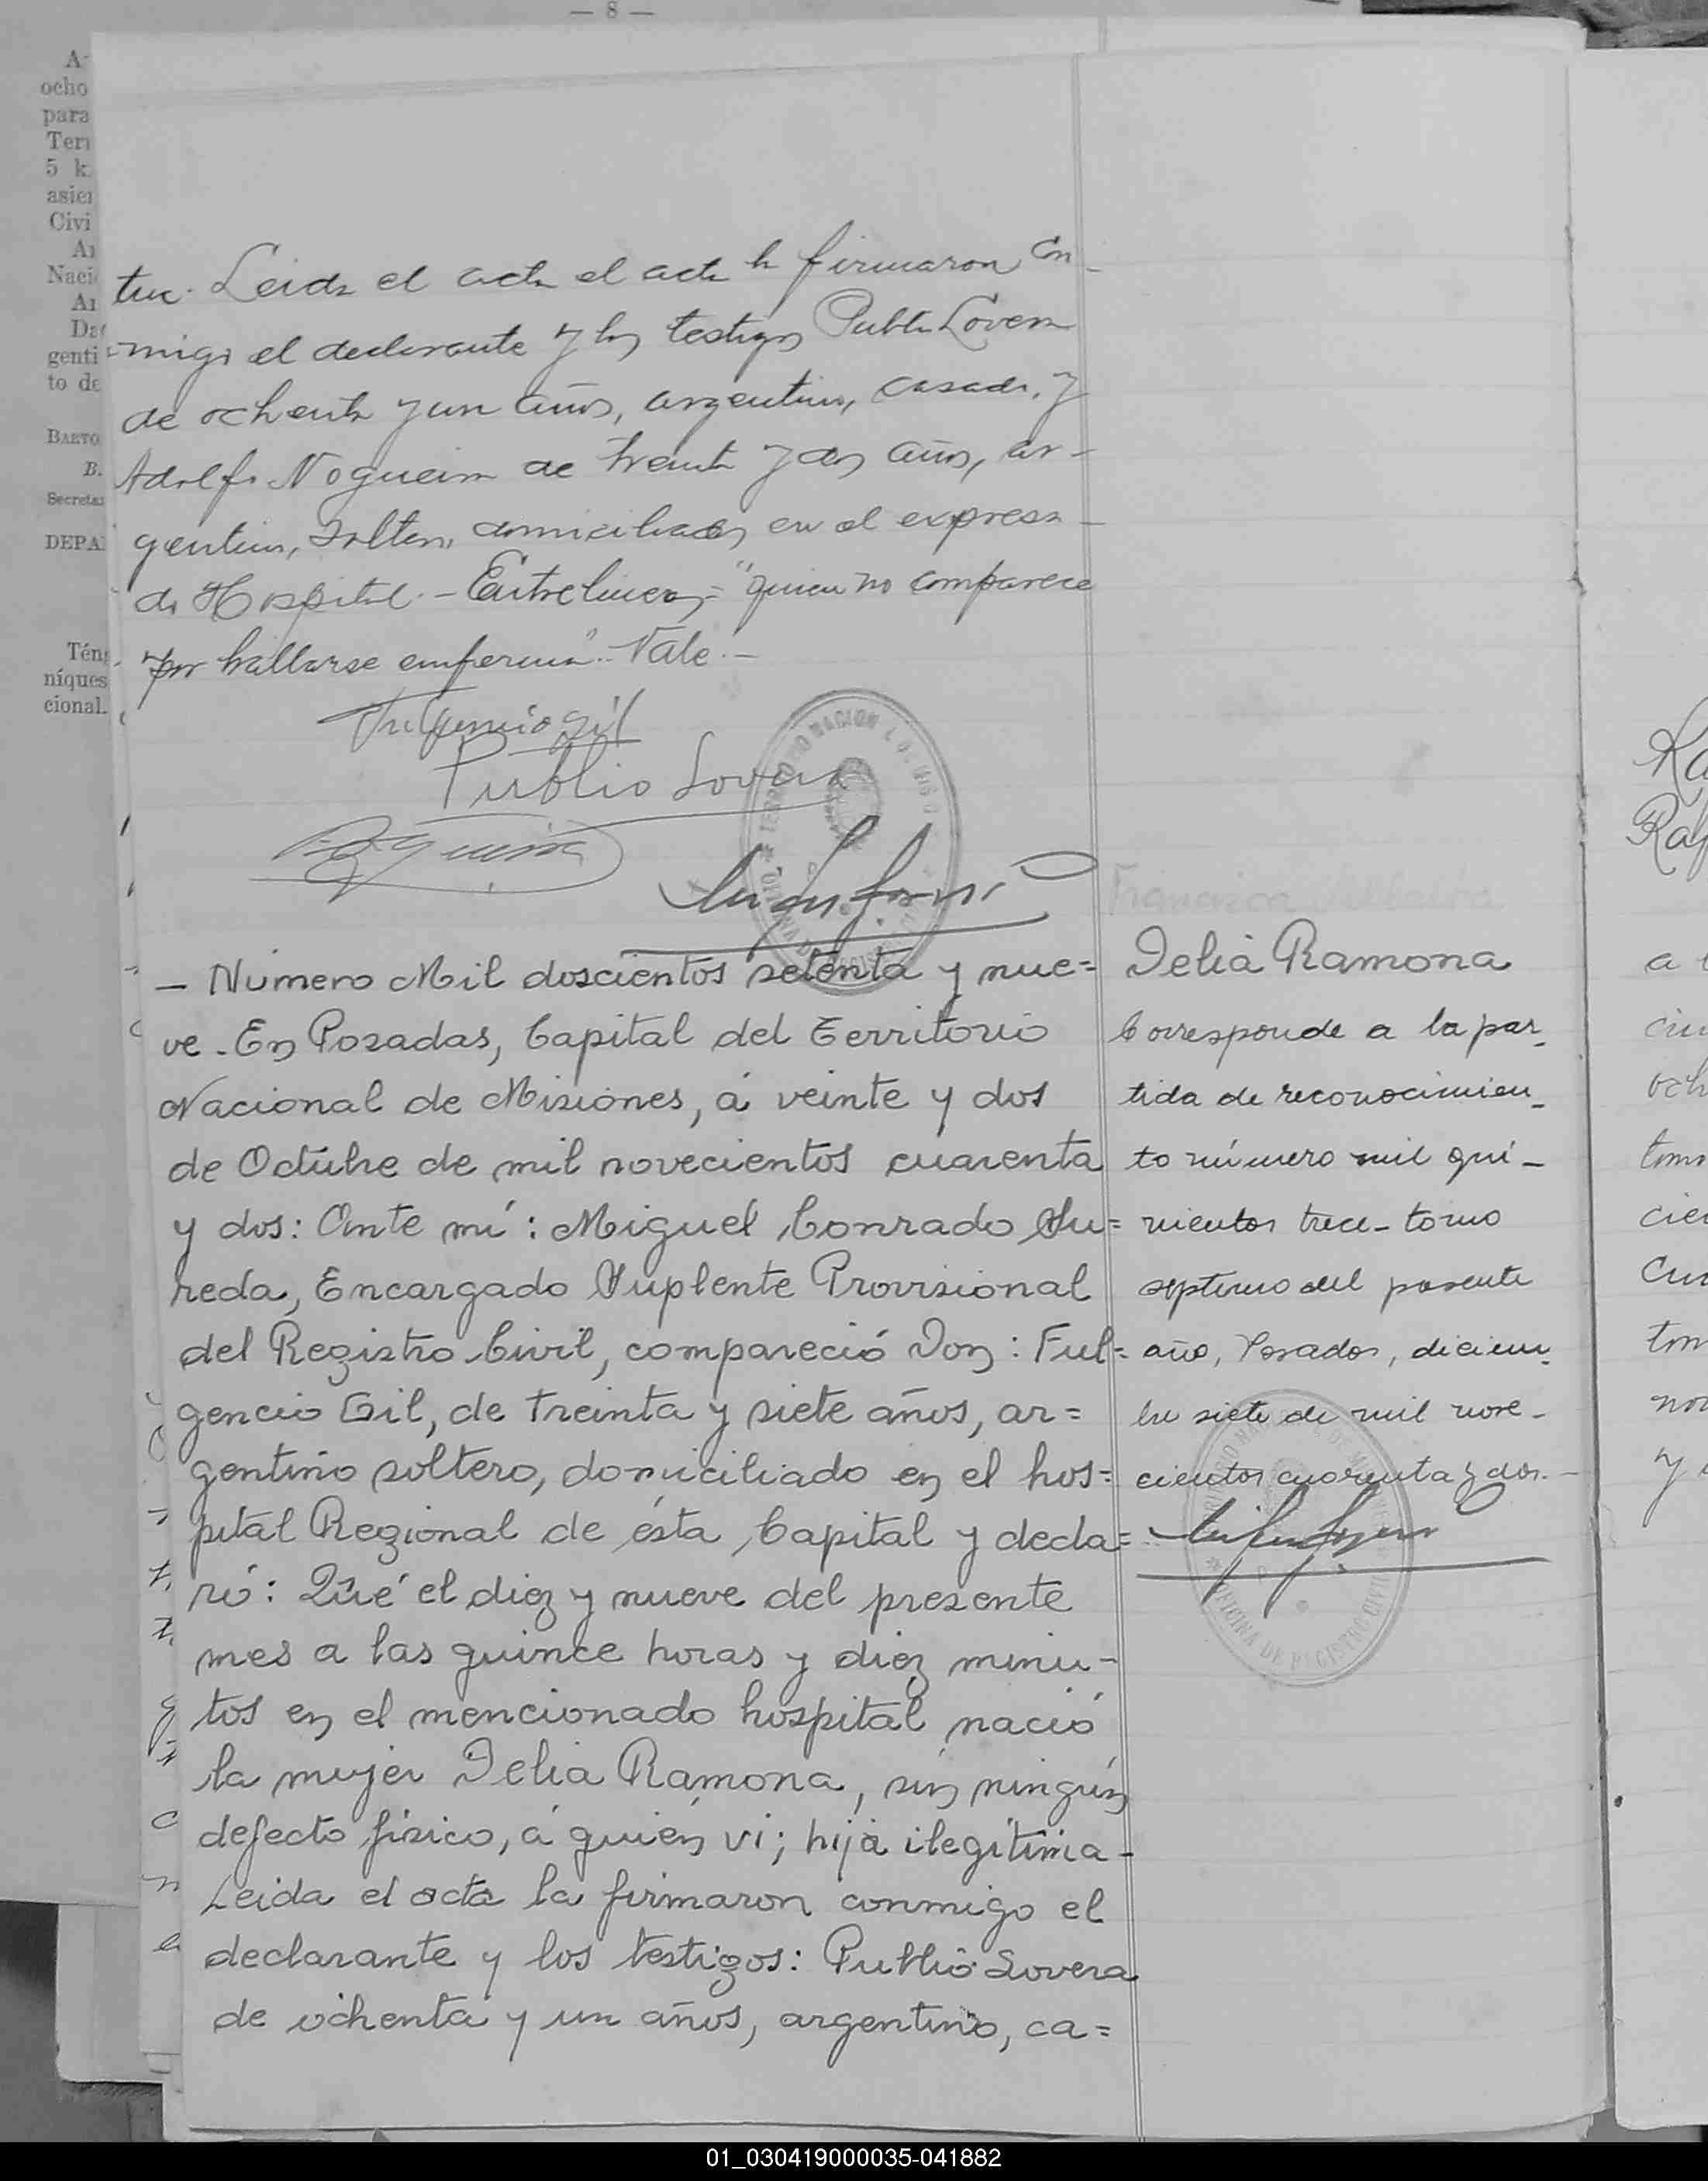 — 8 —
A
ocho
para
Terr
5 k.
asier
Civi
Ar
Naci
Ar
Da
genti
to de
BARTO
B.
Secretar
DEPA
Tén
níques
cional.
tuc. Leida el acta el acta la firmaron con-
migo el declarante y los testigos Publio Lovera
de ochenta y un años, argentino, casado, y
Adolfo Nogueira de treinta y dos años, ar-
gentino, soltero, domiciliados en el expresa-
do Hospital.- Entrelineas= "quien no comparece
por hallarse enferma". Vale.-
Fulgencio Gil
Publio Lovera
— Número Mil doscientos setenta y nue=
ve. En Posadas, Capital del Territorio
Nacional de Misiones, á veinte y dos
de Octubre de mil novecientos cuarenta
y dos: Ante mí: Miguel Conrado Su=
reda, Encargado Suplente Provisional
del Registro Civil, compareció Don: Ful=
gencio Gil, de treinta y siete años, ar=
gentino soltero, domiciliado en el hos=
pital Regional de ésta Capital y decla=
ró: Qué el diez y nueve del presente
mes a las quince horas y diez minu-
tos en el mencionado hospital nació
la mujer Delia Ramona, sin ningún
defecto físico, á quién vi; hija ilegítima-
Leida el acta la firmaron conmigo el
declarante y los testigos: Publio Lovera
de ochenta y un años, argentino, ca=
Delia Ramona
Corresponde a la par-
tida de reconocimien-
to número mil qui-
nientos trece- tomo
septimo del presente
año, Posadas, diciem-
bre siete de mil nove-
cientos cuarenta y dos.-
OFICINA DE REGISTRO CIVIL
01_030419000035-041882